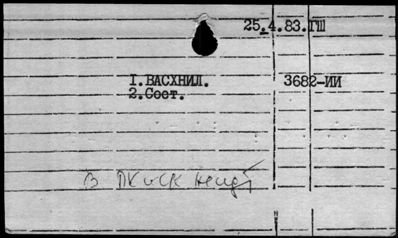 25.4.83.ГШ
I.ВАСХНИЛ. 3682-ИИ
2.Сост.
В ПК и СК не идёт